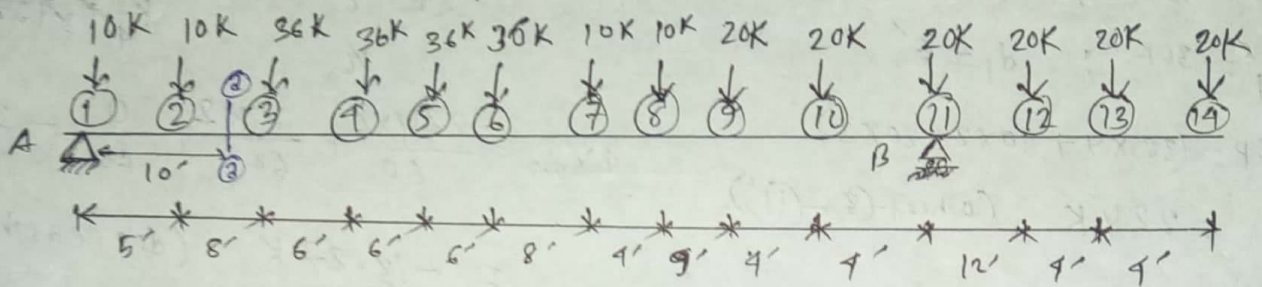 10K 10K 36K 36K 36K 36K 10K 10K 20K 20K 20K 20K 20K 20K
1 2 2 3 4 5 6 7 8 9 10 11 12 13 14
A B
10' 2
5' 8' 6' 6' 6' 8' 4' 9' 4' 4' 12' 4' 4'